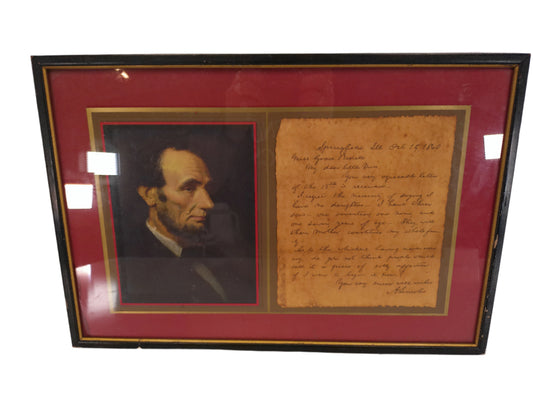 Springfield, Ill Oct 19, 1860
Miss Grace Bedell
My dear little Miss
Your very agreeable letter
of the 15th is received.
I regret the necessity of saying I
have no daughters. I have three
sons - one seventeen, one nine, and
one seven years of age. They, with
their mother, constitute my whole fami
ly.
As to the whiskers, having never worn
any, do you not think people would
call it a piece of silly affection
if I were to begin it now?
Your very sincere well wisher
A. Lincoln